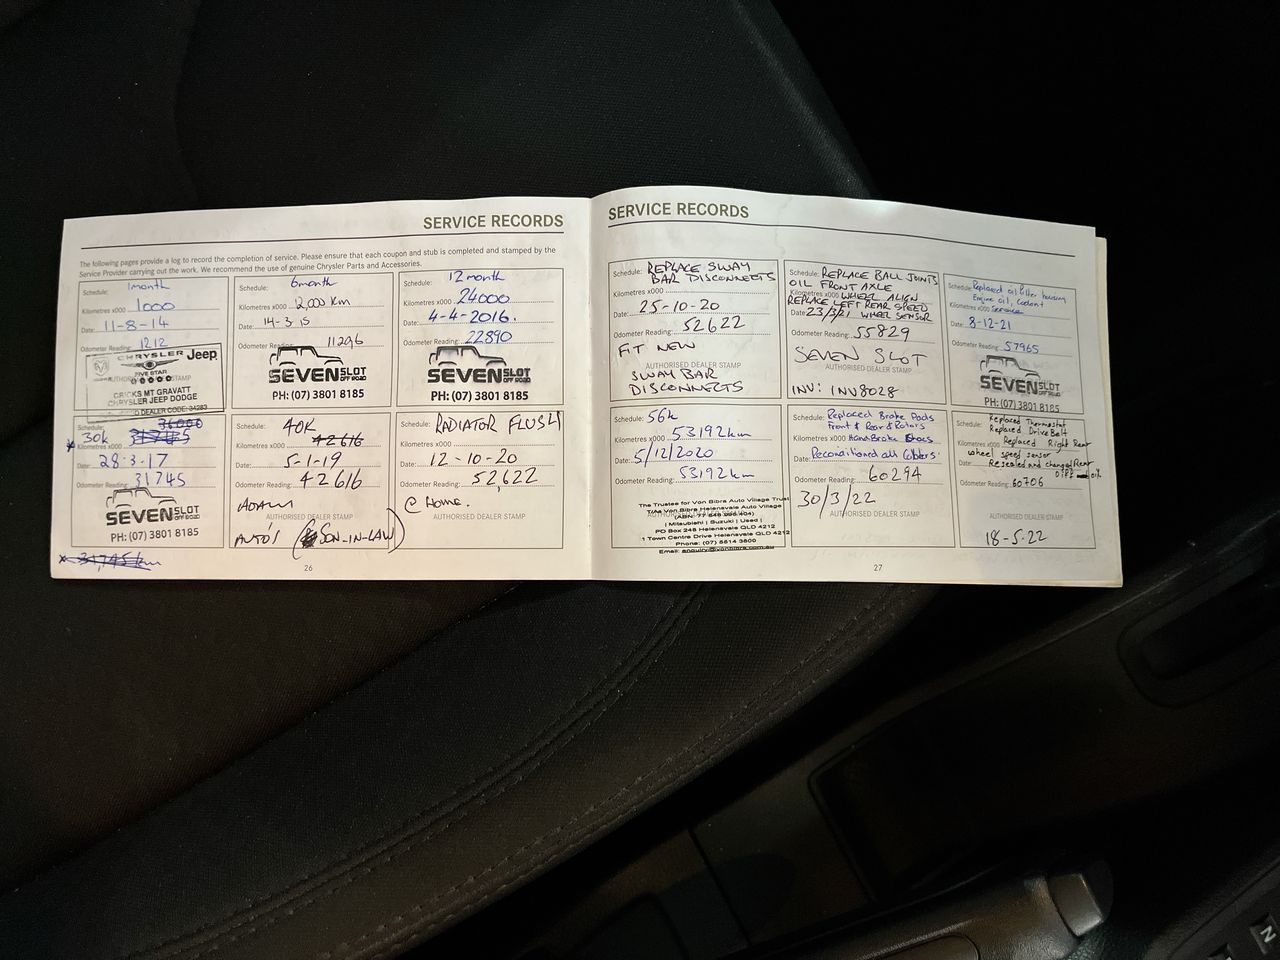 SERVICE RECORDS
The following pages provide a log to record the completion of service. Please ensure that each coupon and stub is completed and stamped by the
Service Provider carrying out the work. We recommend the use of genuine Chrysler Parts and Accessories.
Schedule: 1month
Kilometres x000 1000
Date: 11-8-14
Odometer Reading: 1212
CHRYSLER Jeep
FIVE STAR
AUTHORISED DEALER STAMP
CRICKS MT GRAVATT
CHRYSLER JEEP DODGE
DEALER CODE: 34283
Schedule: 6month
Kilometres x000 12,000 Km
Date: 14-3-15
Odometer Reading: 11296
SEVEN SLOT
OFF ROAD
PH: (07) 3801 8185
Schedule: 12month
Kilometres x000 24000
Date: 4-4-2016.
Odometer Reading: 22890
SEVEN SLOT
OFF ROAD
PH: (07) 3801 8185
Schedule: 36000
Kilometres x000 30k 31745
Date: 28-3-17
Odometer Reading: 31745
SEVEN SLOT
OFF ROAD
PH: (07) 3801 8185
* 31,745km
Schedule: 40K
Kilometres x000 42616
Date: 5-1-19
Odometer Reading: 42616
ADAM
AUTHORISED DEALER STAMP
AUTO'S (SON-IN-LAW)
Schedule: RADIATOR FLUSH
Kilometres x000
Date: 12-10-20
Odometer Reading: 52,622
@ HOME.
AUTHORISED DEALER STAMP
26
SERVICE RECORDS
Schedule: REPLACE SWAY
BAR DISCONNECTS
Kilometres x000
Date: 25-10-20
Odometer Reading: 52622
FIT NEW
AUTHORISED DEALER STAMP
SWAY BAR
DISCONNECTS
Schedule: REPLACE BALL JOINTS
OIL FRONT AXLE
Kilometres x000 WHEEL ALIGN
REPLACE LEFT REAR SPEED
Date: 23/3/21 WHEEL SENSOR
Odometer Reading: 55829
SEVEN SLOT
AUTHORISED DEALER STAMP
INV: INV8028
Schedule: Replaced oil filter housing
Engine oil, Coolant
Kilometres x000 Service
Date: 8-12-21
Odometer Reading: 57965
SEVEN SLOT
OFF ROAD
PH: (07) 3801 8185
Schedule: 56k
Kilometres x000 53192km
Date: 5/12/2020
Odometer Reading: 53192km
The Trustee for Von Bibra Auto Village Trust
T/As Von Bibra Helensvale Auto Village
| Mitsubishi | Suzuki | Used |
PO Box 248 Helensvale QLD 4212
1 Town Centre Drive Helensvale QLD 4212
Phone: (07) 5514 3800
Email: enquiry@vonbibra.com.au
Schedule: Replaced Brake Pads
Front & Rear & Rotors
Kilometres x000 HandBrake Shoes
Date: Reconditioned all Calipers
Odometer Reading: 60294
30/3/22
AUTHORISED DEALER STAMP
Schedule: Replaced Thermostat
Replaced Drive Belt
Kilometres x000 Replaced Right Rear
wheel speed sensor
Date: Resealed and changed Rear
DIFF oil
Odometer Reading: 60706
AUTHORISED DEALER STAMP
18-5-22
27
N